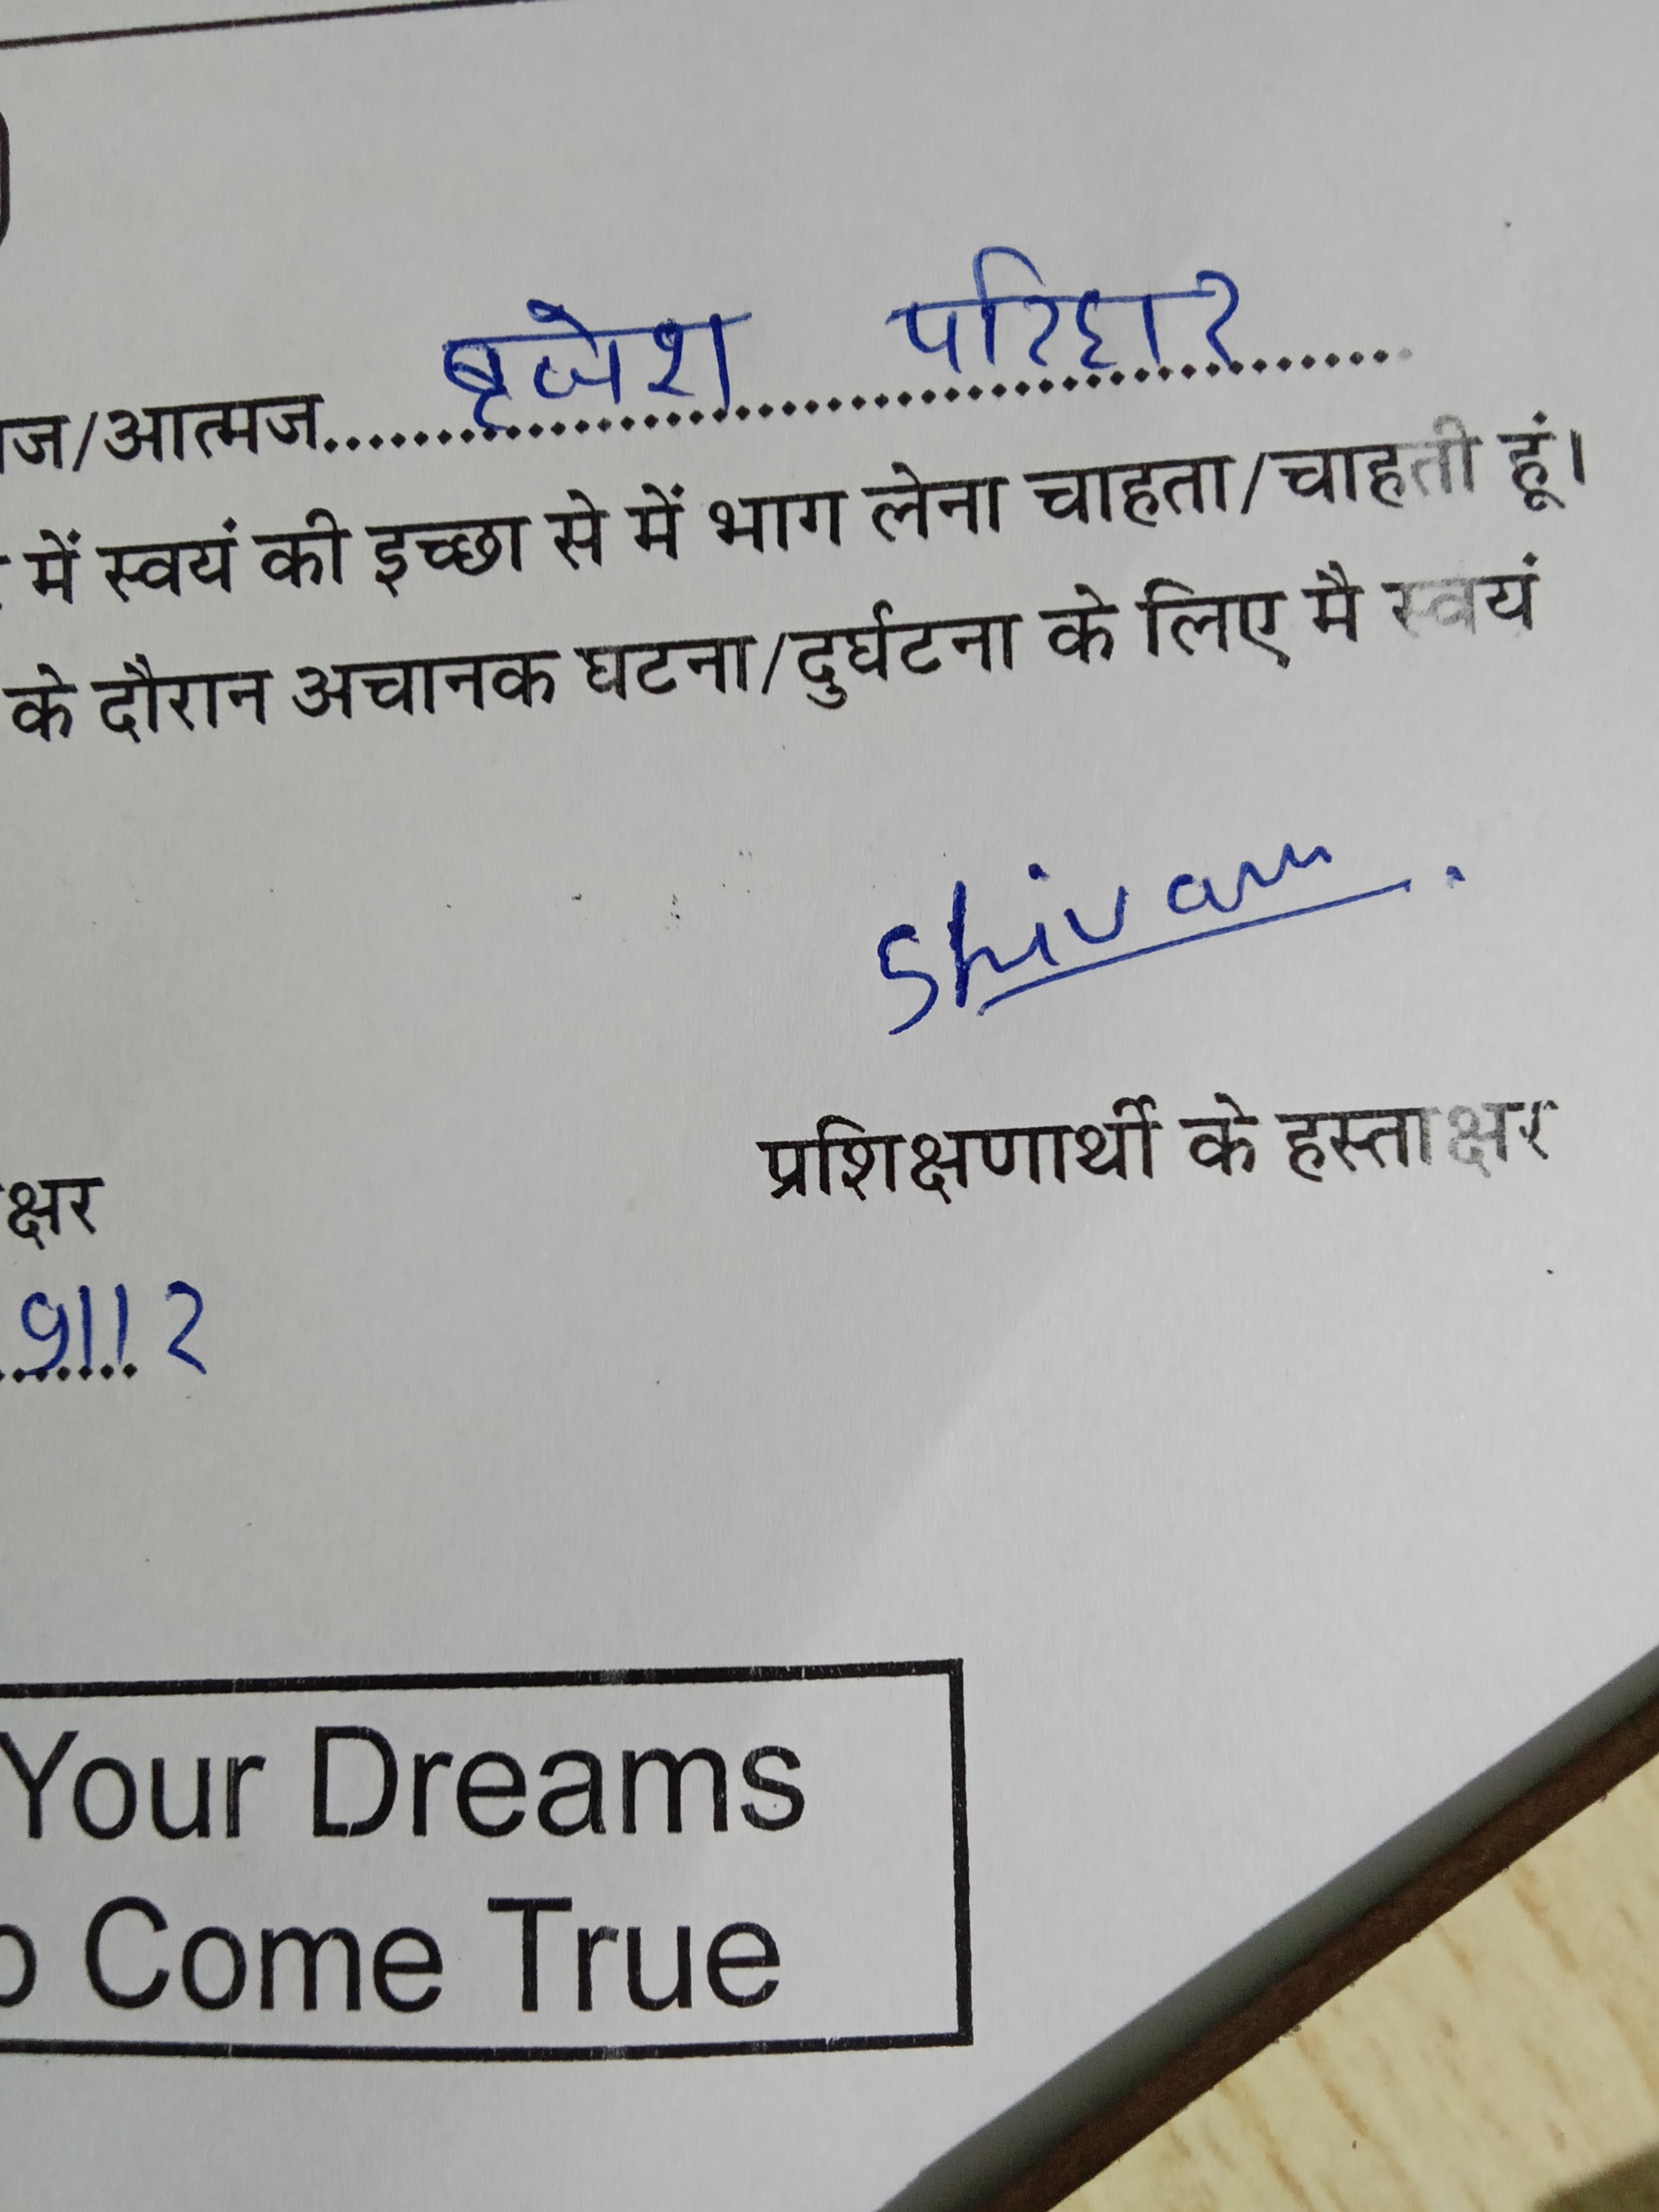 ज/आत्मज.......... बृजेश परिहार
में स्वयं की इच्छा से में भाग लेना चाहता/चाहती हूं।
के दौरान अचानक घटना/दुर्घटना के लिए मै स्वयं
Shivam.
प्रशिक्षणार्थी के हस्ताक्षर
क्षर
9112
Your Dreams
Come True